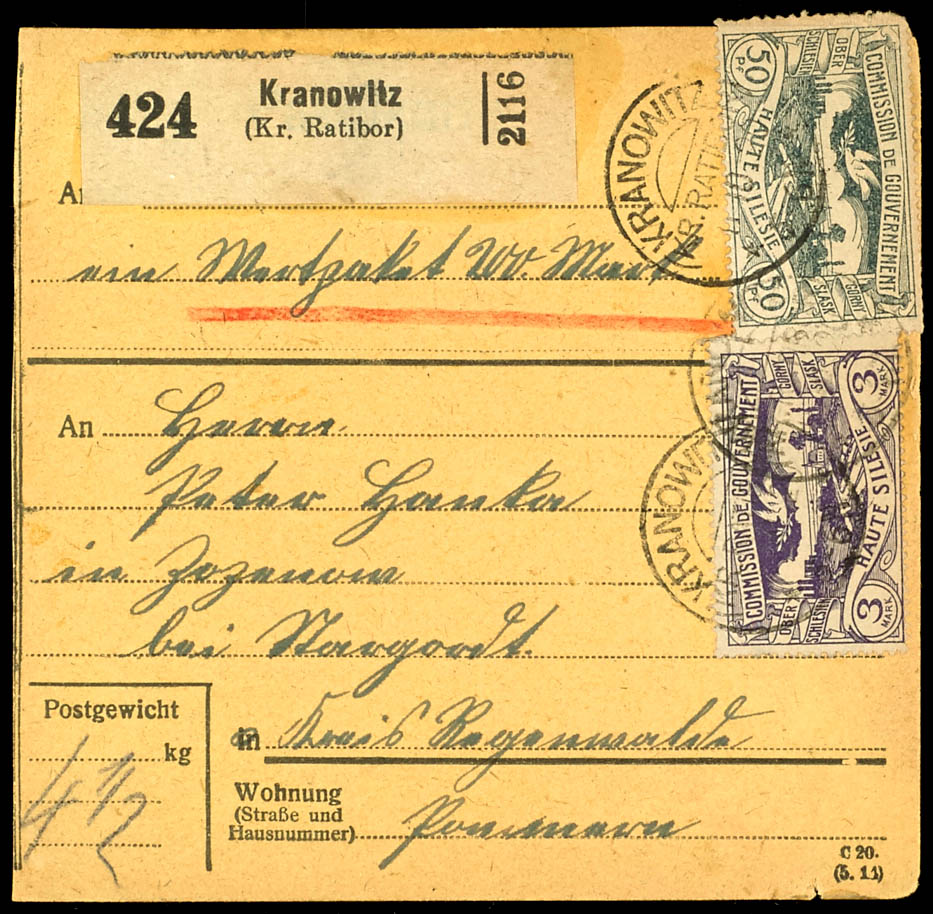 424
Kranowitz
(Kr. Ratibor)
2116
KRANOWITZ
KR. RATI
50 Pf.
OBER SCHLESIEN
COMMISSION DE GOUVERNEMENT
HAUTE SILESIE
GÓRNY ŚLĄSK
50 Pf.
ein Wertpaket 200 Mark
An Herrn
Peter Hanka
in Zozenow
bei Stargordt.
in Kreis Regenwalde
Wohnung
(Straße und
Hausnummer) Pommern
KRANOWITZ
3 MARK
GÓRNY ŚLĄSK
COMMISSION DE GOUVERNEMENT
HAUTE SILESIE
OBER SCHLESIEN
3 MARK
Postgewicht
4 1/2 kg
C 20.
(5. 11)